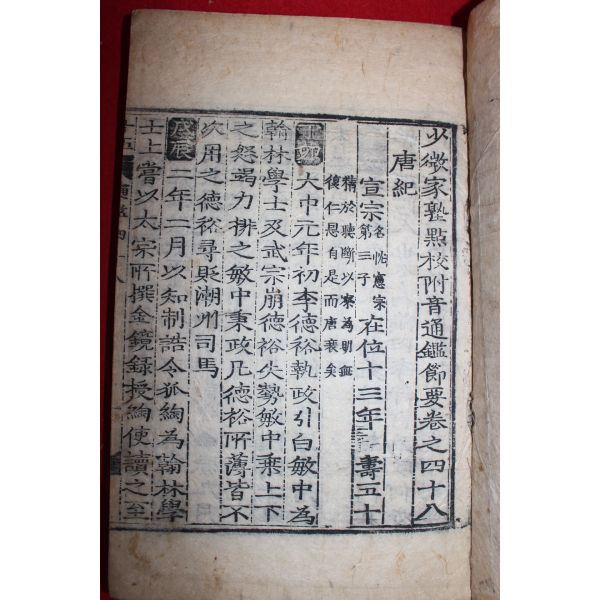 少微家塾點校附音通鑑節要卷之四十八
唐紀
宣宗
名忱憲宗
第十三子
在位十三年
壽五十
精於聽斷以察為明無
復仁恩自是而唐衰矣
大中元年初李德裕執政引白敏中為
翰林學士及武宗崩德裕失勢敏中乘上下
之怒竭力排之敏中秉政凡德裕所薄皆不
次用之德裕尋貶潮州司馬
戊辰
二年二月以知制誥令狐綯為翰林學
士上嘗以太宗所撰金鏡錄授綯使讀之至